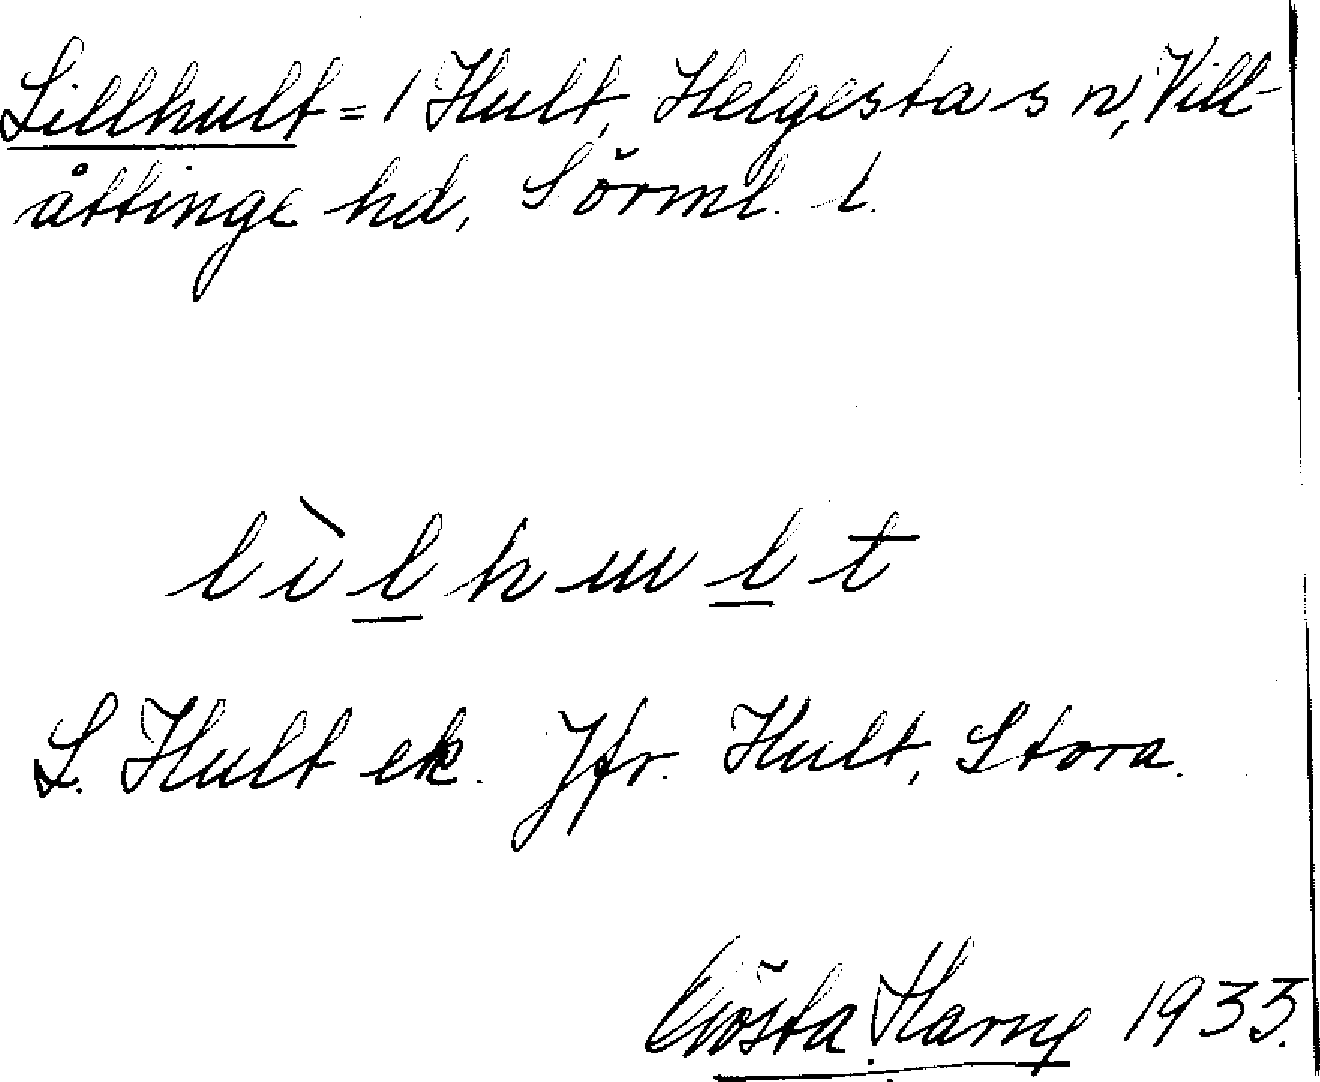 Lillhult = 1 Hult, Helgesta sn, Vill-
åttinge hd, Sörml. l.
lìlhult
L. Hult ek. Jfr. Hult, Stora.
Gösta 1933.